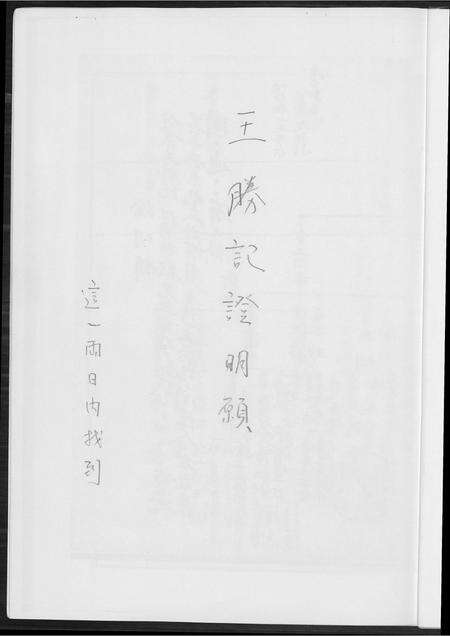 王勝記證明願
這一兩日內找到